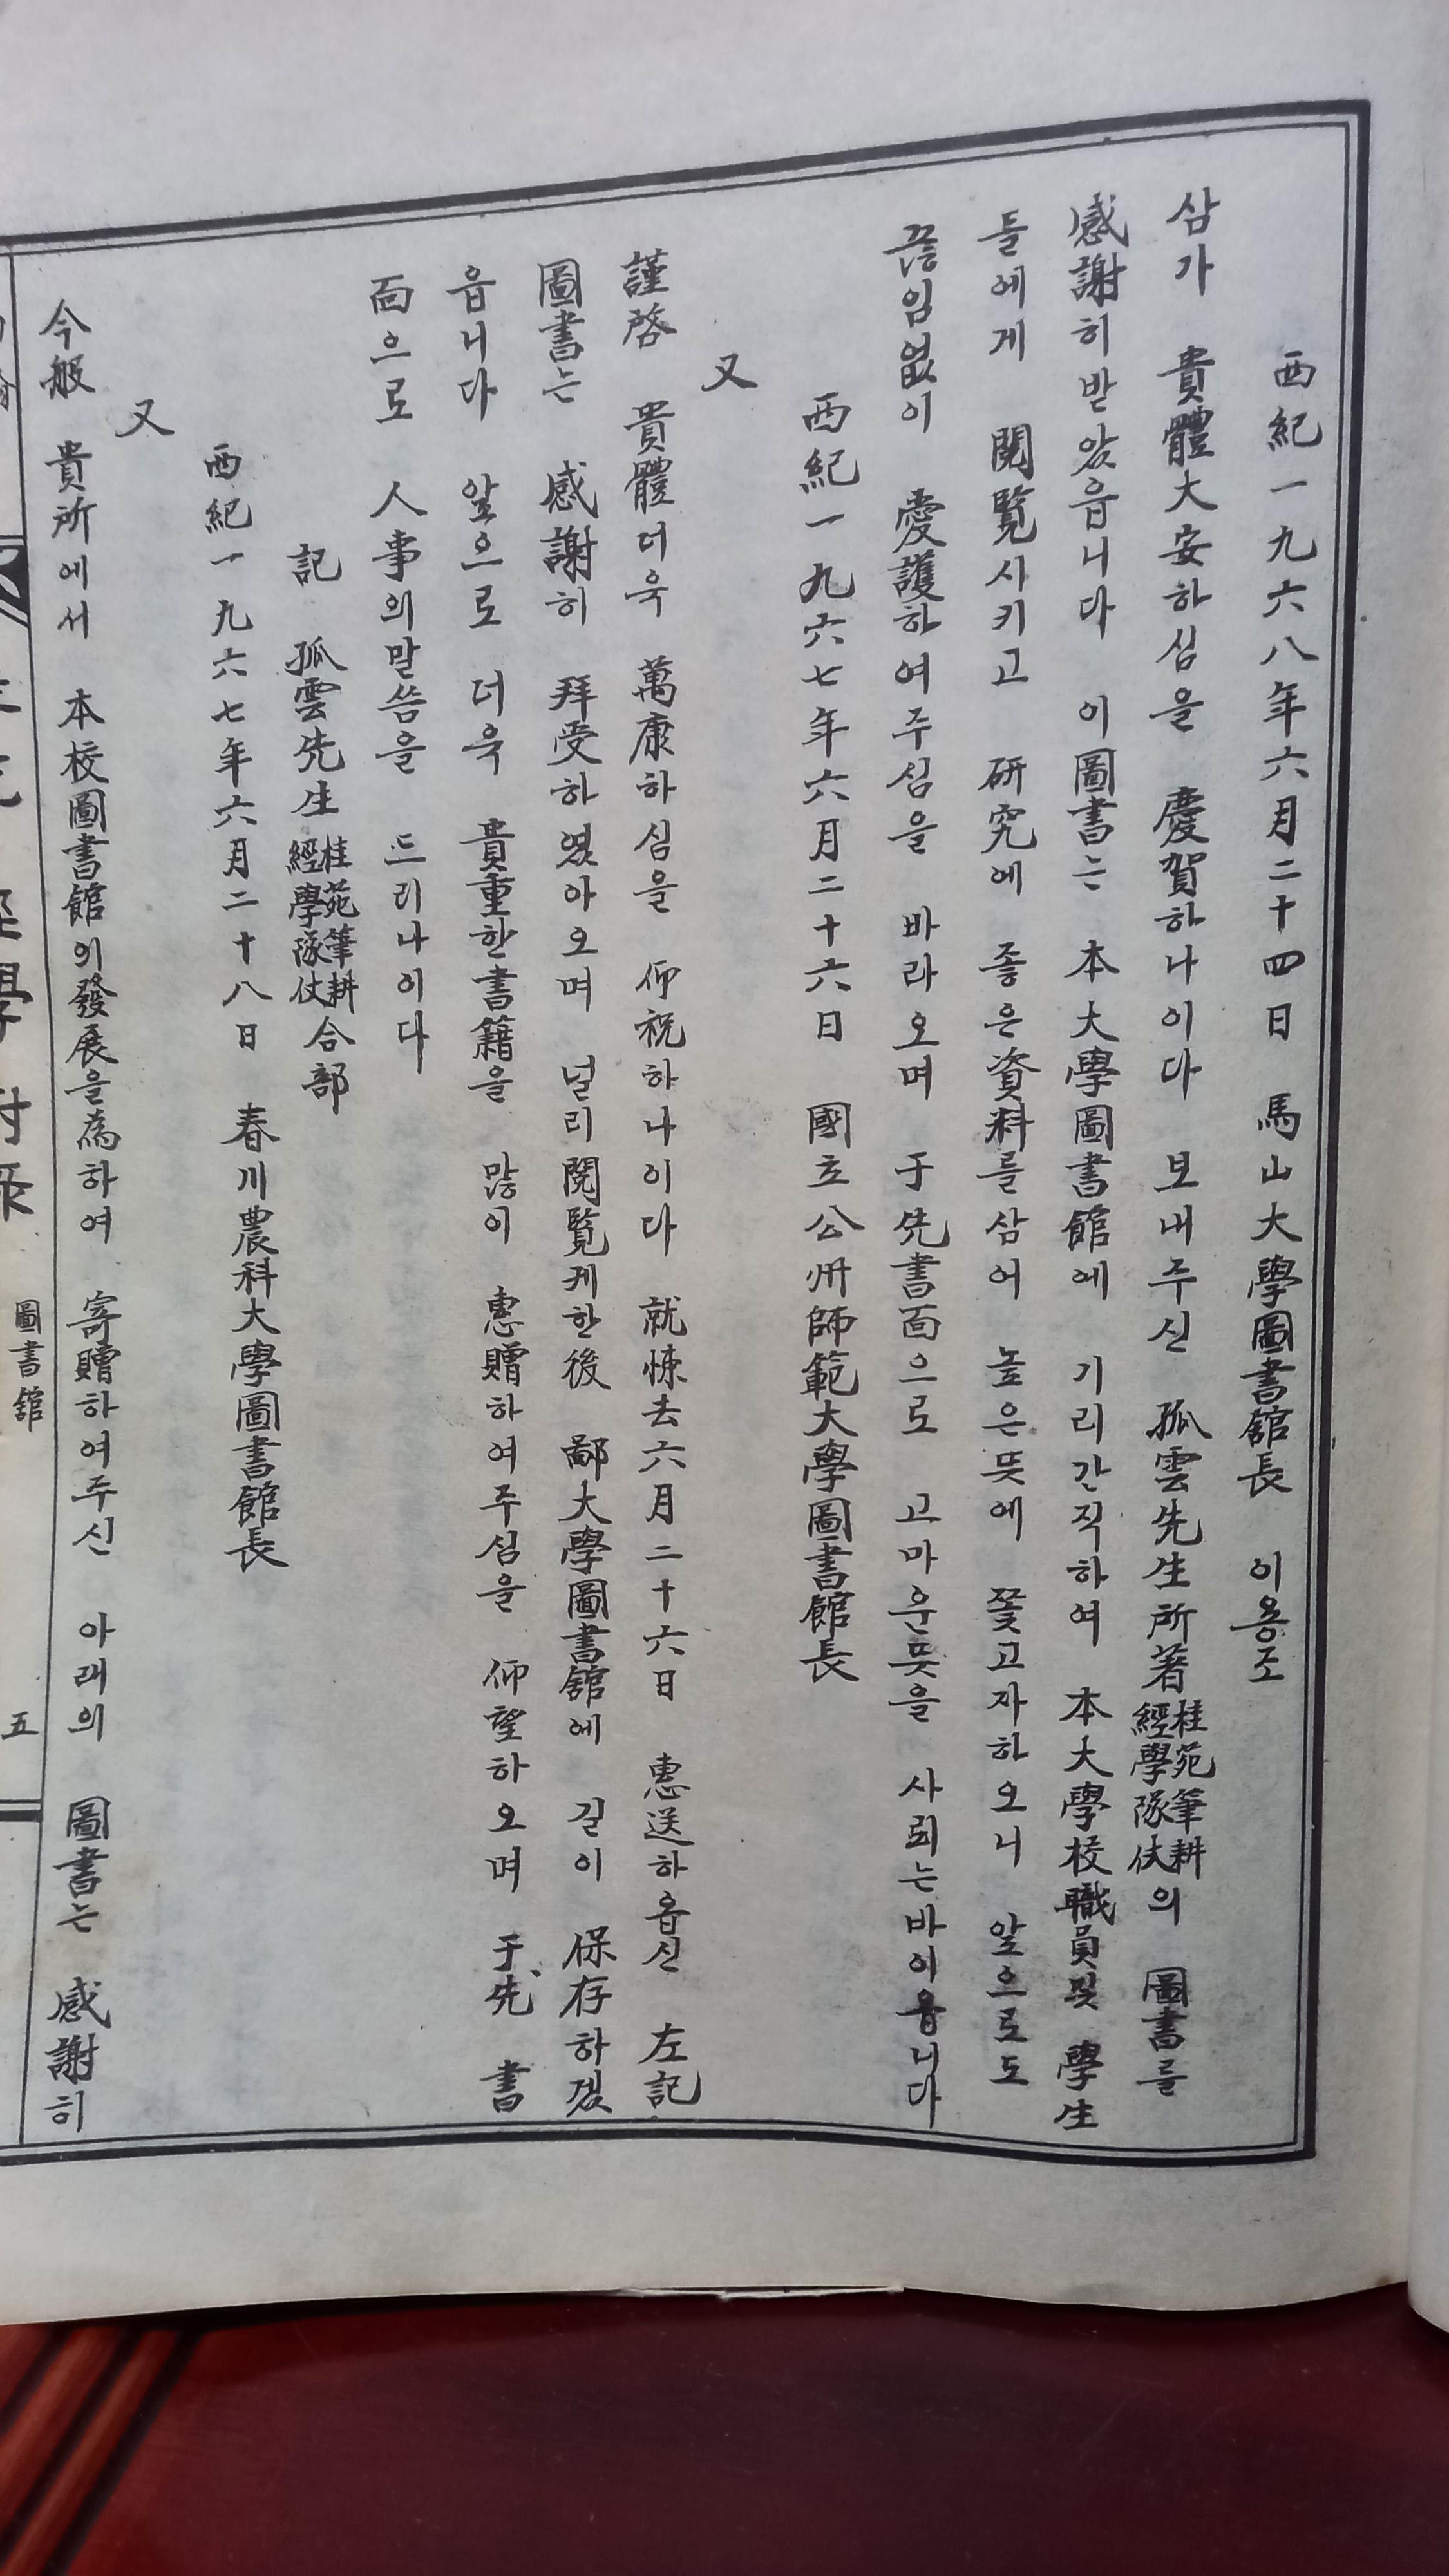 西紀一九六八年六月二十四日 馬山大學圖書館長 이용조
삼가 貴體大安하심을 慶賀하나이다 보내주신 孤雲先生所著桂苑筆耕經學隊仗의 圖書를
感謝히받았읍니다 이圖書는 本大學圖書館에 기리간직하여 本大學校職員및 學生
들에게 閱覽시키고 硏究에 좋은資料를삼어 높은뜻에 쫓고자하오니 앞으로도
끊임없이 愛護하여주심을 바라오며 于先書面으로 고마운뜻을 사뢰는바이옵니다
西紀一九六七年六月二十六日 國立公州師範大學圖書館長
又
謹啓 貴體더욱 萬康하심을 仰祝하나이다 就悚去六月二十六日 惠送하옵신 左記
圖書는 感謝히 拜受하였아오며 널리閱覽케한後 鄙大學圖書舘에 길이 保存하겠
읍니다 앞으로 더욱 貴重한書籍을 많이 惠贈하여주심을 仰望하오며 于先、 書
面으로 人事의말씀을 드리나이다
記 孤雲先生桂苑筆耕經學隊仗合部
西紀一九六七年六月二十八日 春川農科大學圖書館長
又
今般 貴所에서 本校圖書館의發展을爲하여 寄贈하여주신 아래의 圖書는 感謝히
圖書舘 五